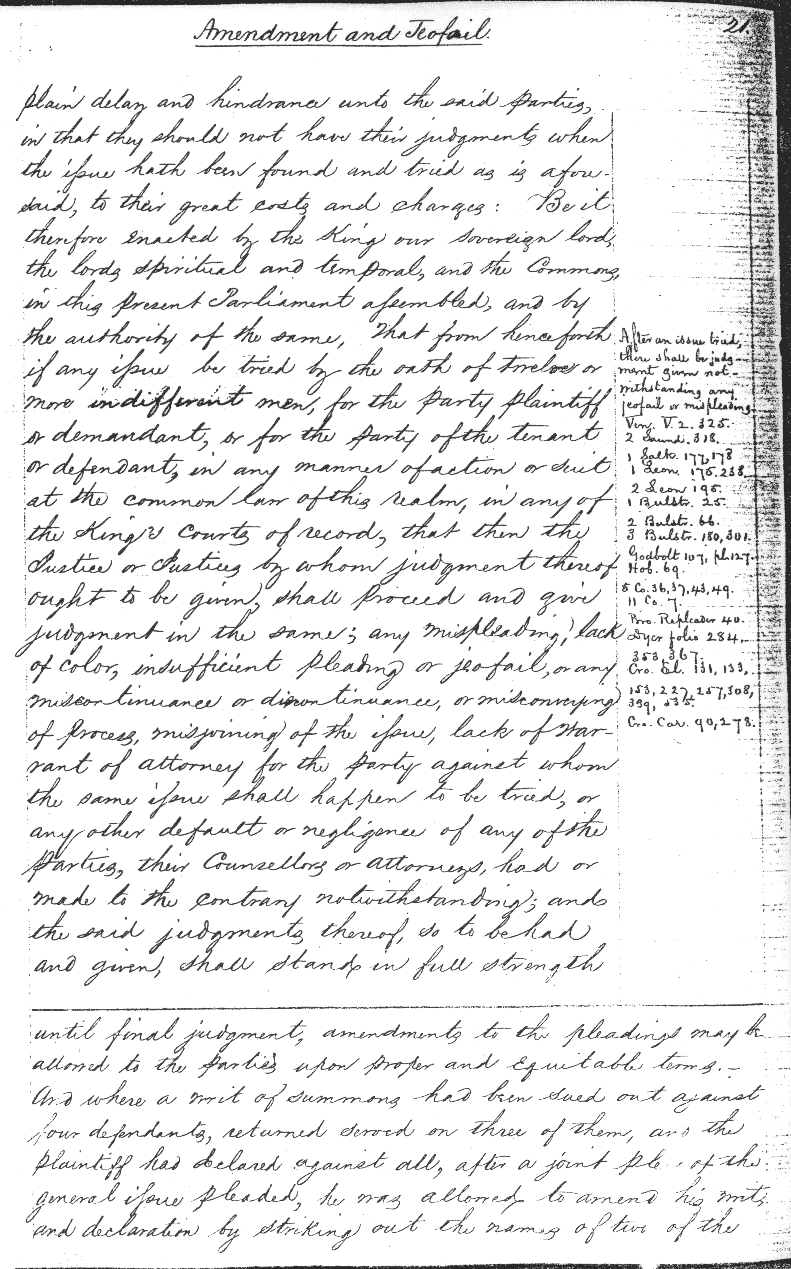 Amendment and Jeofail.
21.
plain delay and hindrance unto the said parties,
in that they should not have their judgments when
the issue hath been found and tried as is afore-
said, to their great costs and charges: Be it
therefore enacted by the King our sovereign lord,
the lords spiritual and temporal, and the Commons,
in this present Parliament assembled, and by
the authority of the same, That from henceforth
if any issue be tried by the oath of twelve or
more indifferent men, for the party plaintiff
or demandant, or for the party of the tenant
or defendant, in any manner of action or suit
at the common law of this realm, in any of
the King's Courts of record, that then the
Justice or Justices by whom judgment thereof
ought to be given, shall proceed and give
judgment in the same; any mispleading, lack
of color, insufficient pleading or jeofail, or any
miscontinuance or discontinuance, or misconveying
of process, misjoining of the issue, lack of war-
rant of attorney for the party against whom
the same issue shall happen to be tried, or
any other default or negligence of any of the
parties, their Counsellors or attorneys, had or
made to the contrary notwithstanding; and
the said judgments thereof, so to be had
and given, shall stand in full strength
After an issue tried,
there shall be judg-
ment given not-
withstanding any
jeofail or mispleading.
Vin. V. 2. 325.
2 Saund. 318.
1 Salk. 177, 178
1 Leon. 175. 238.
2 Leon 195.
1 Bulstr. 25.
2 Bulstr. 66.
3 Bulstr. 180, 301.
Godbolt 107, pl. 127.
Hob. 69.
5 Co. 36, 37, 43, 49.
11 Co. 7.
Bro. Repleader 40.
Dyer folio 284,
353, 367.
Cro. El. 131, 133,
153, 227, 257, 308,
339, 535.
Cro. Car. 90, 278.
until final judgment, amendments to the pleadings may be
allowed to the parties upon proper and equitable terms.—
And where a writ of summons had been sued out against
four defendants, returned served on three of them, and the
plaintiff had declared against all, after a joint plea of the
general issue pleaded, he was allowed to amend his writ,
and declaration by striking out the names of two of the